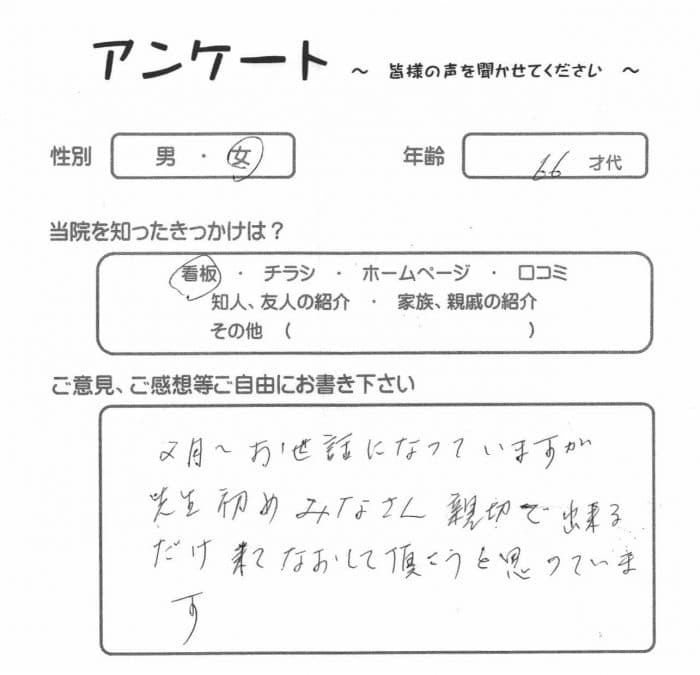 アンケート ～ 皆様の声を聞かせてください ～
性別 男 ・ 女 年齢 66 才代
当院を知ったきっかけは？
看板 ・ チラシ ・ ホームページ ・ 口コミ
知人、友人の紹介 ・ 家族、親戚の紹介
その他 （ ）
ご意見、ご感想等ご自由にお書き下さい
2月～お世話になっていますが
先生初めみなさん親切で出来る
だけ来てなおして頂こうと思っていま
す